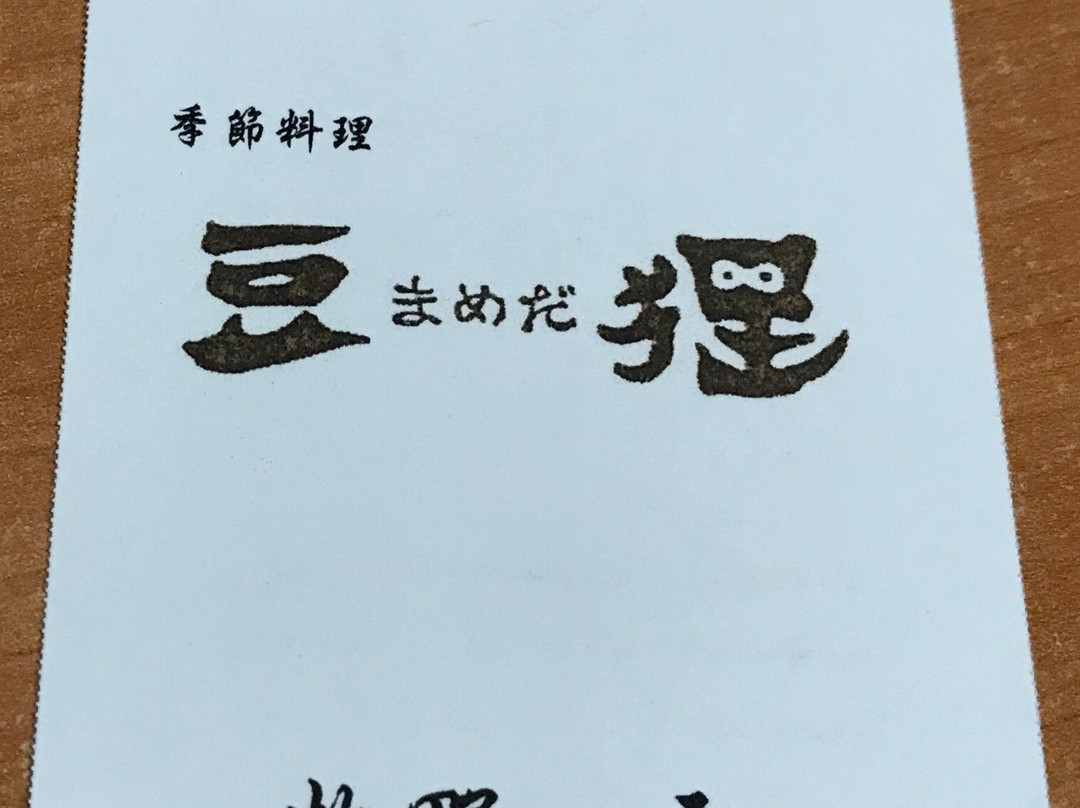 季節料理
豆 まめだ 狸